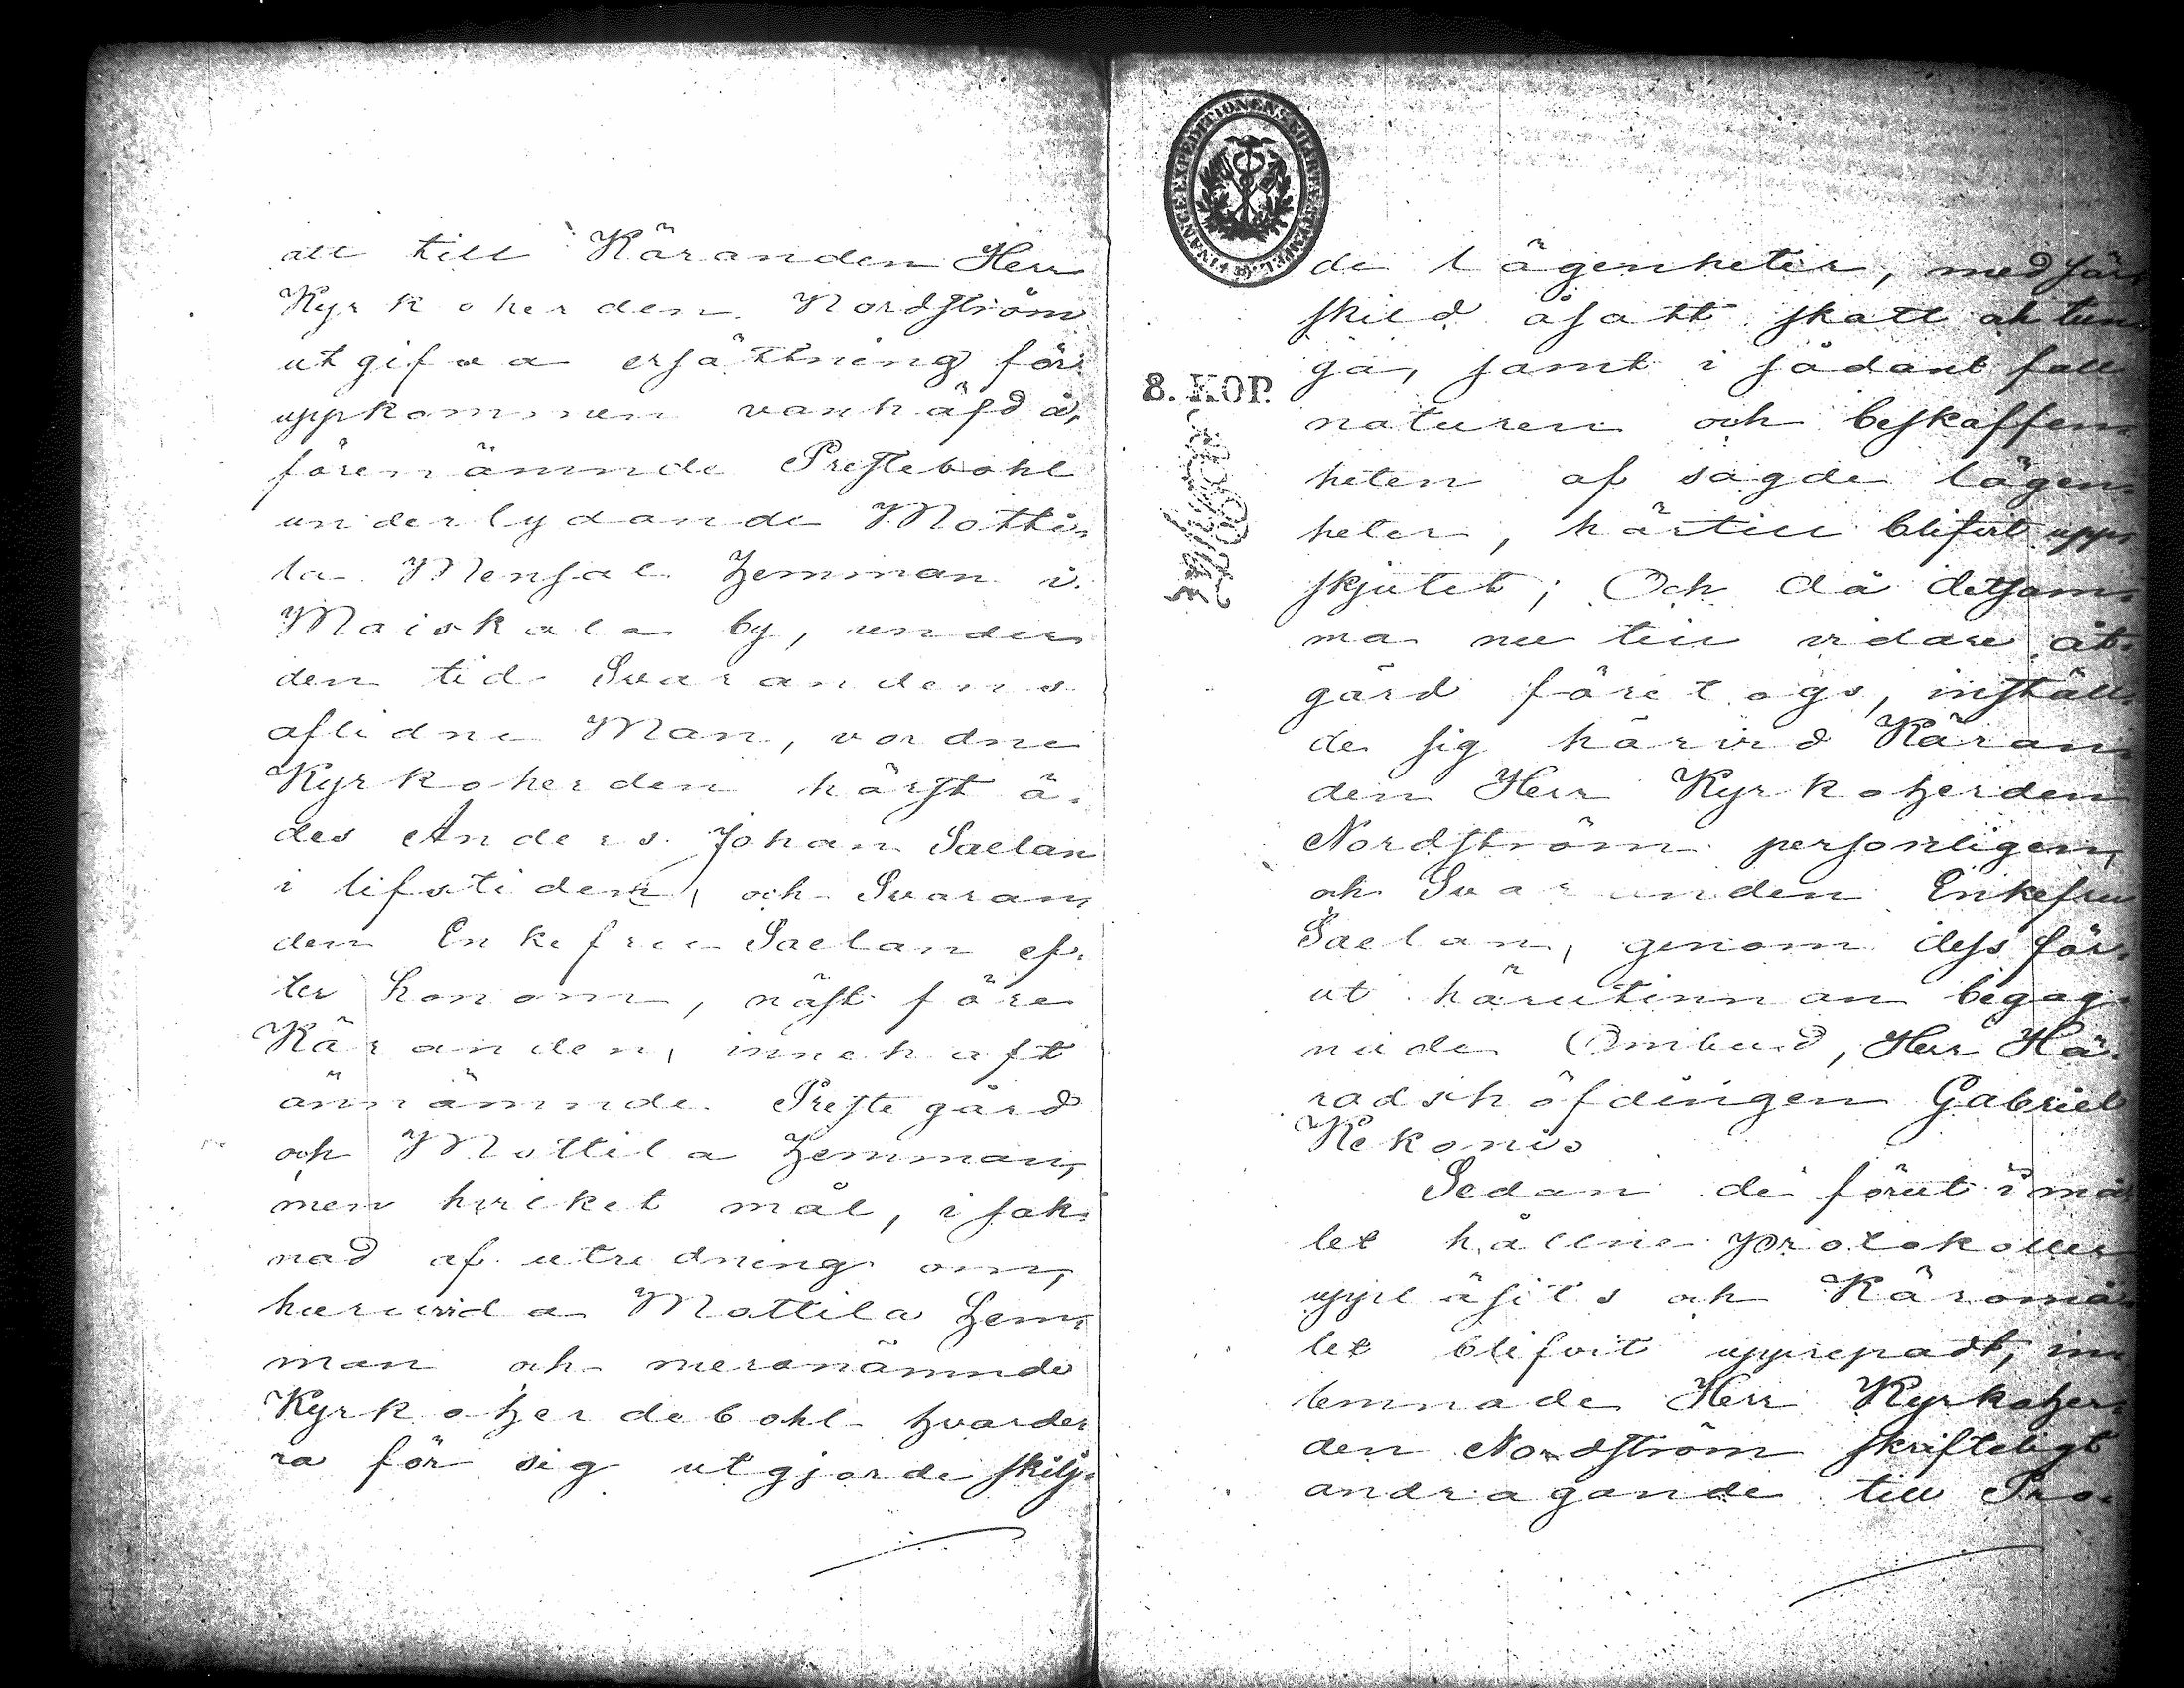 att till Käranden Herr
Kyrkoherden Nordström
utgifva ersättning för
uppkommen vanhäfd å,
förenämnde Prestebohl
underlydande Motti-
la Mensal Hemman i
Maiskala by, under
den tid Svarandens
aflidne Man, vordne
Kyrkoherden härst ä-
des Anders Johan Saelan
i lifstiden, och Svaran,
den Enkefru Saelan ef-
ter honom, näst före
Käranden, innehaft
ännämnde Prestegård
och Mottila Hemman,
men hvilket mål, i sak-
nad af utredning om,
huruvida Mottila Hem-
man och meranämnde
Kyrkoherdebohl hvarde-
ra för sig utgjorde skilj-
FINANCE EXPEDITIONENS
8. KOP.
de lägenheter, med sär-
skild åsatt skatt och tun-
ga, samt i sådant fall
naturen och beskaffen-
heten af sagde lägen-
heter, härtill blifvit upp-
skjutet; Och då detsam-
ma nu till vidare åt-
gärd företogs, inställ-
de sig härvid Käran-
den Herr Kyrkoherden
Nordström personligen,
och Svaranden Enkefru
Saelan, genom dess för-
ut härutinnan begag-
nade Ombud, Herr Hä-
radshöfdingen Gabriel
Kekonius
Sedan de förut i må-
let hållne protokoller
uppläsits och Käromå-
let blifvit upprepadt, in-
lemnade Herr Kyrkoher-
den Nordström skrifteligt
andragande till Pro-